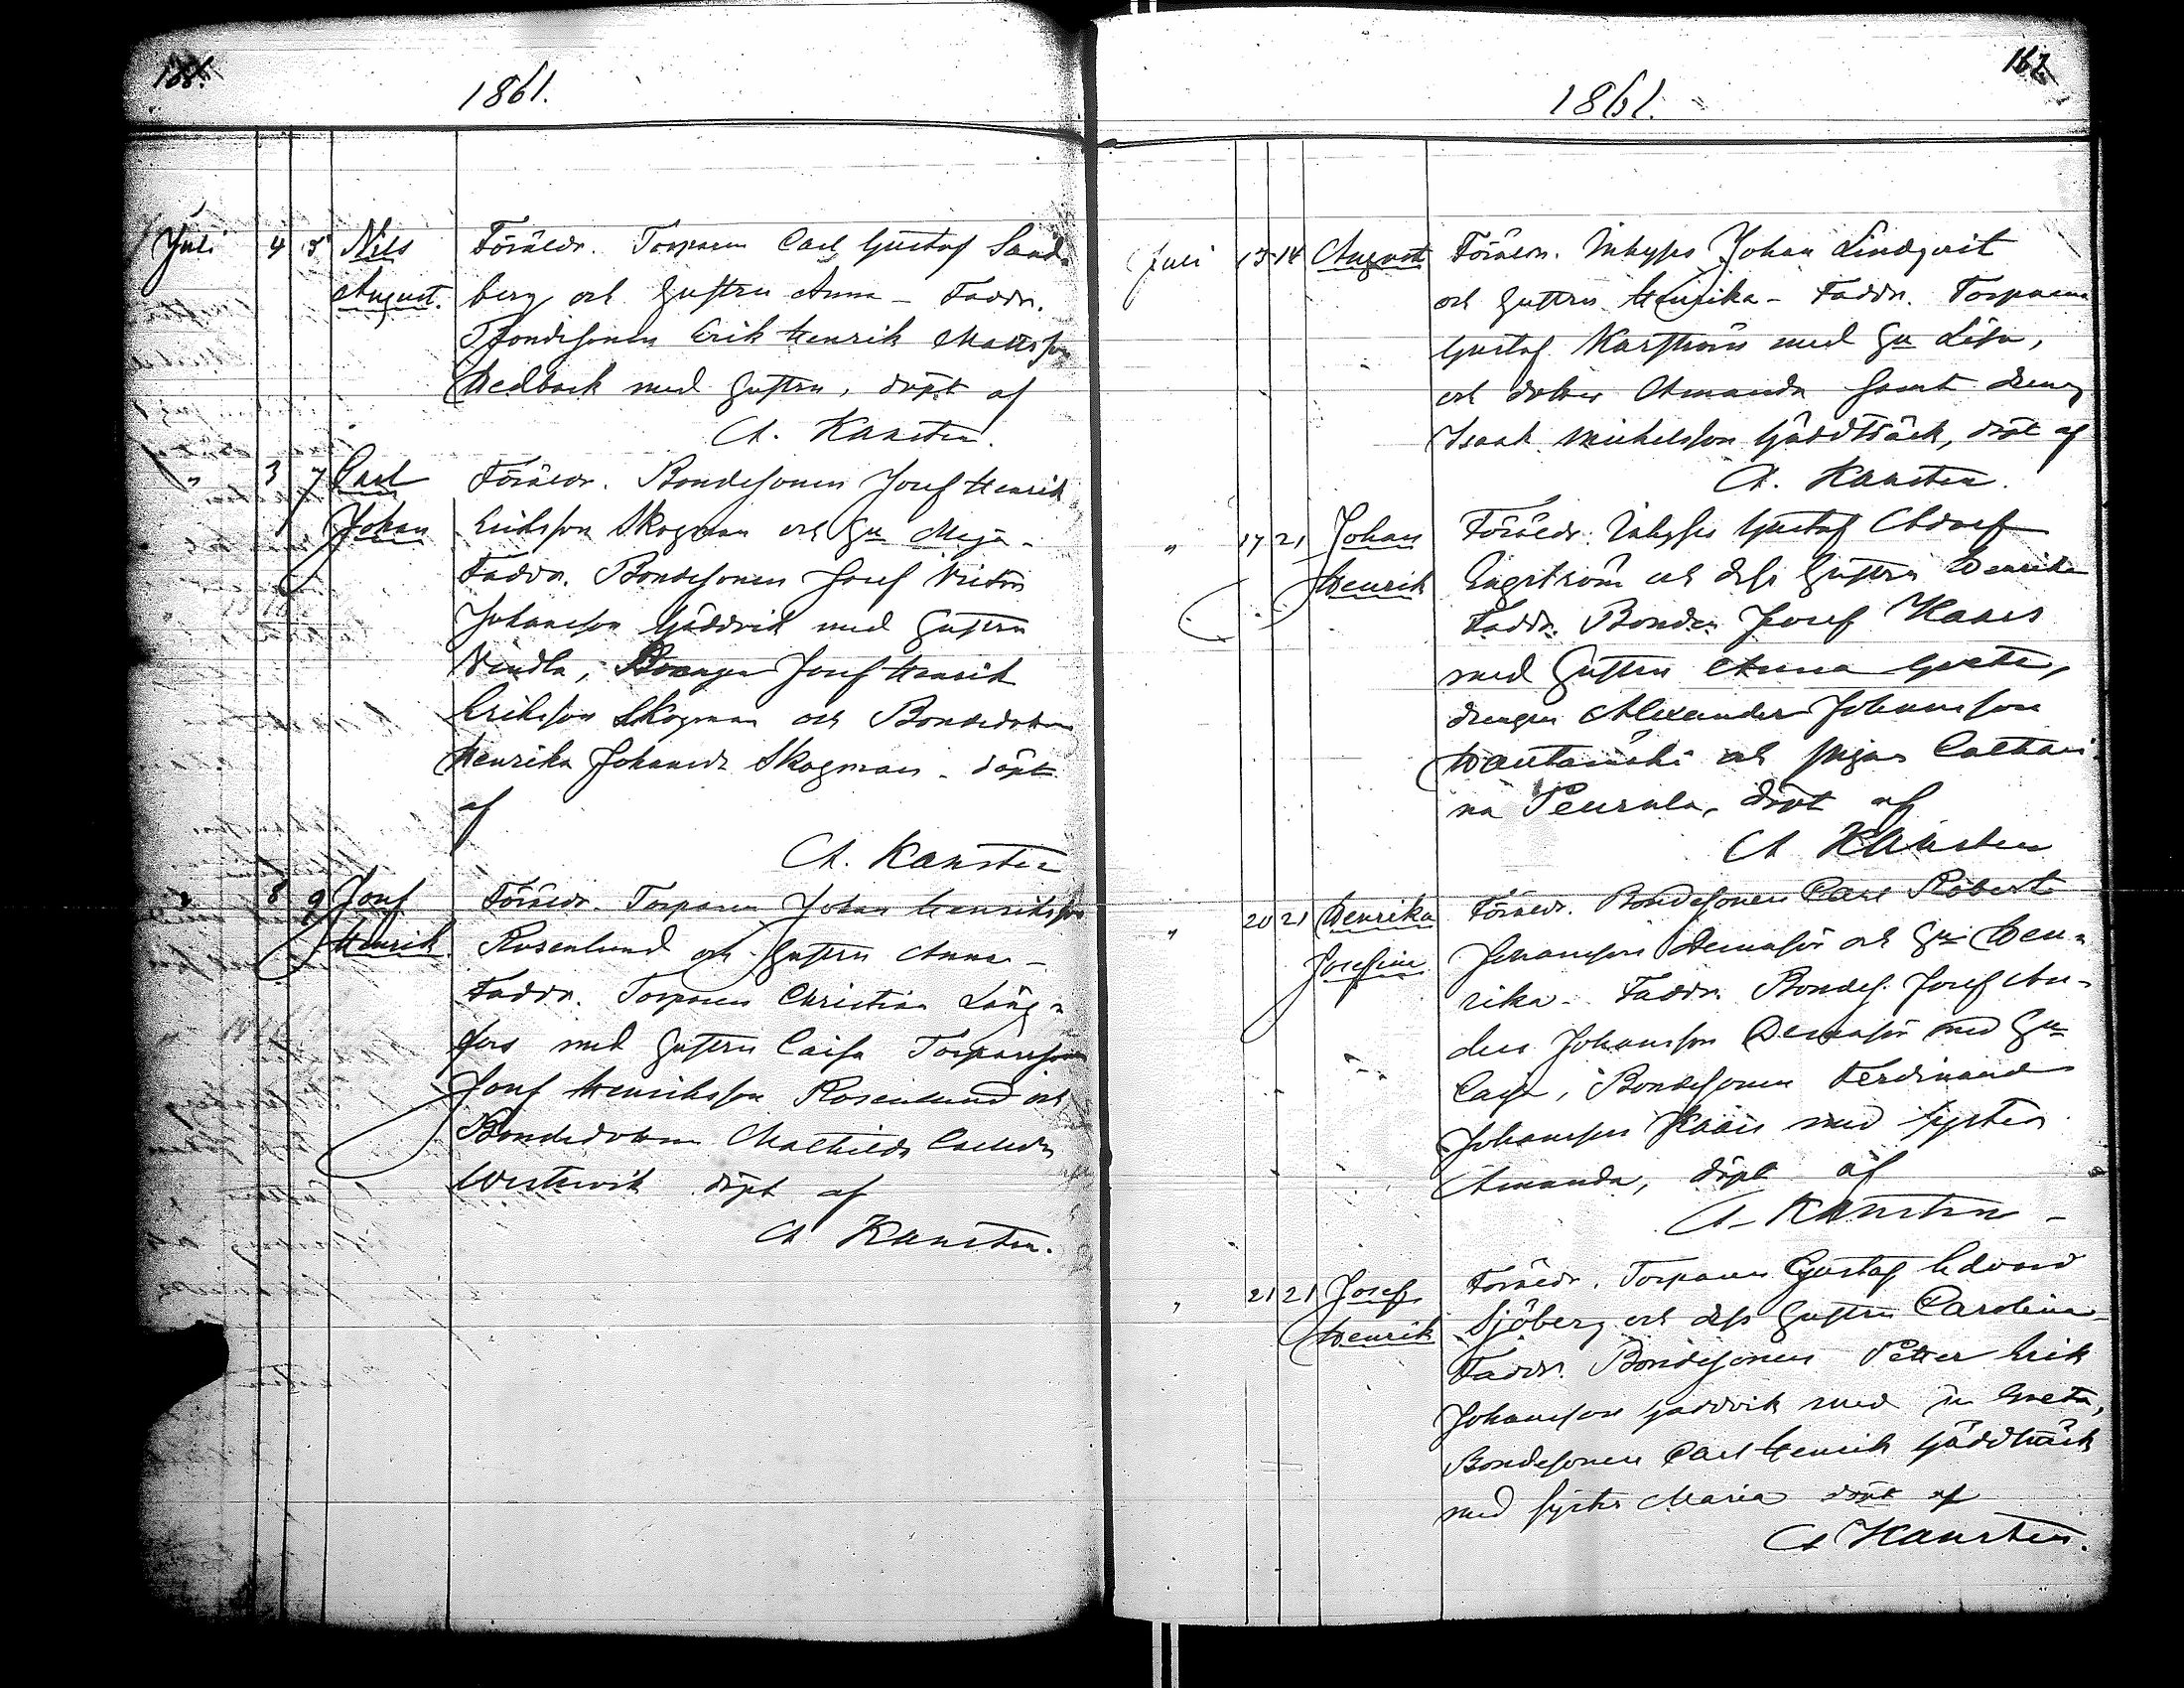 1861.
Juli 4 5 Nils Föräldr. Torparen Carl Gustaf Sand-
August. berg och hustrun Anna - Faddr.
Bondesonen Erik Henrik Mattsson
Hedback med hustru, döpt af
A. Karsten.
" 3 7 Carl Föräldr. Bondesonen Josef Henrik
Johan Eriksson Skogman och hu Maja -
Faddr. Bondesonen Josef Victor
Johansson Gäddvik med hustru
Vendla, Josef Henrik
Eriksson Skogman och Bondedottren
Henrika Johansdr Skogman - döpt
af
A. Karsten
" 8 9 Josef Föräldr. Torparen Johan Henriksson
Henrik Rosenlund och hustrun Anna -
Faddr. Torparen Christian Lång-
fors med hustru Caisa Torparesonen
Josef Henriksson Rosenlund och
Bondedottren Mathilda Carlsdr
Westervik döpt af
A Karsten.
167
1861.
Juli 13 14 August Föräldr. Inhyses Johan Lindqvist
och hustrun Henrika - Faddr. Torparen
Gustaf Karström med hu Lisa,
och dotter Amanda samt dreng
Isaak Mickelsson Gäddträsk, döpt af
A. Karsten.
" 17 21 Johan Föräldr. Inhyses Gustaf Adolf
Henrik Engström och dess hustru Henrika
Faddr. Bonden Josef Kaars
med hustru Anna Greta,
drengen Alexander Johansson
och pigan Cathari-
na döpt af
A Karsten
" 20 21 Henrika Föräldr. Bondesonen Carl Robert
Josefina Johansson och hu Hen-
rika - Faddr. Bondes. Josef An-
ders Johansson med hu
Caisa, Bondesonen Ferdinand
Johansson Kaars med syster
Amanda, döpt af
A. Karsten -
" 21 21 Josef Föräldr. Torparen Gustaf Edvard
Henrik Sjöberg och dess hustru Carolina -
Faddr. Bondesonen Petter Erik
Johansson Gäddvik med hu Greta,
Bondesonen Carl Henrik Gäddträsk
med syster Maria döpt af
A Karsten.